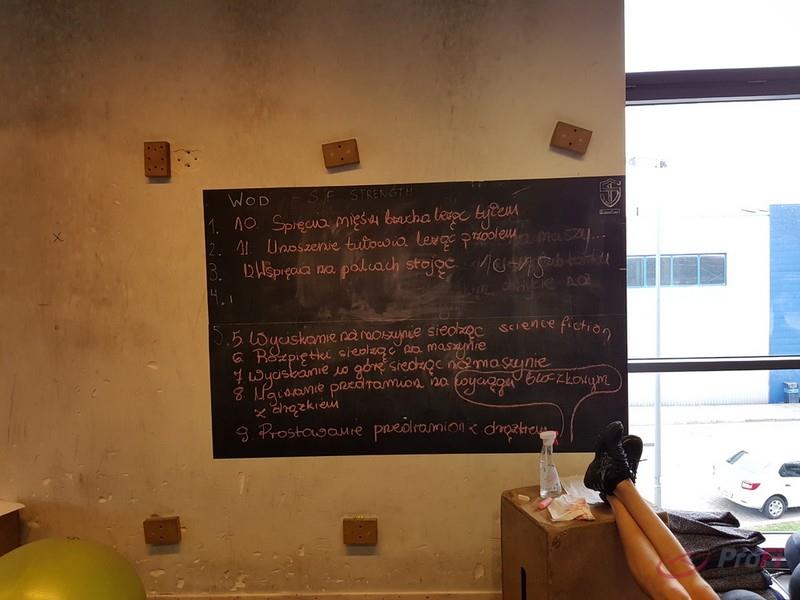 WOD - S.F STRENGTH
1. 10 Spięcia mięśni brzucha leżąc tyłem
2. 11 Unoszenie tułowia leżąc przodem
3. 12 Wspięcia na palcach stojąc 10-15
4.
5. 5 Wyciskanie na maszynie siedząc science fiction
6 Rozpiętki siedząc na maszynie
7 Wyciskanie w górę siedząc na maszynie
8 Uginanie przedramion na wyciągu bloczkowym
z drążkiem
9. Prostowanie przedramion z drążkiem
ProFi